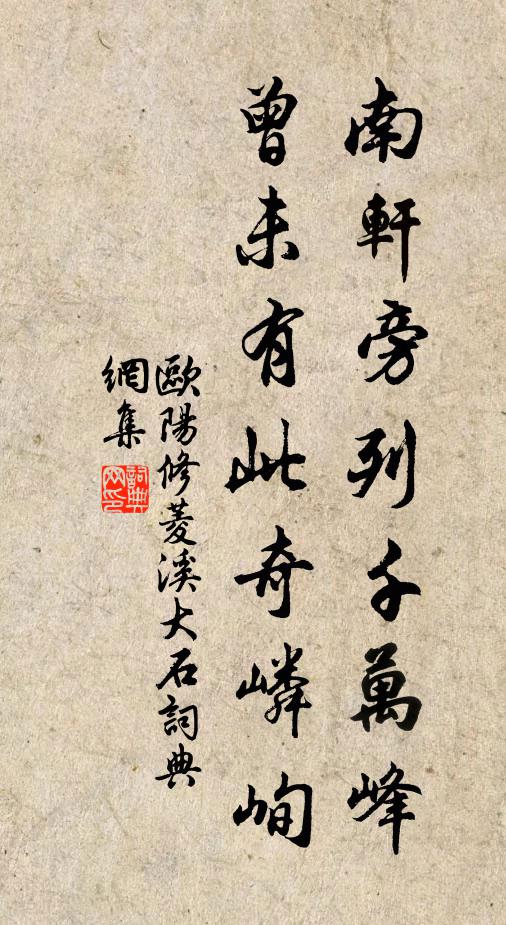 南軒旁列千萬峰
曾未有此奇嶙峋
歐陽修菱溪大石詞典
網集
詞典網印